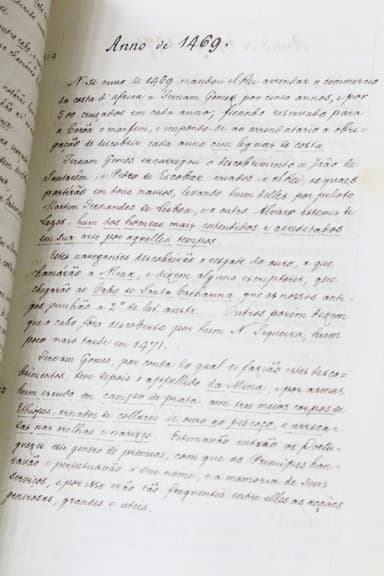 Anno de 1469.
N'este anno de 1469 mandou elRei arrendar o commercio
da costa d'africa a Fernam Gomez por cinco annos, e por
500 cruzados em cada anno; ficando reservado para
a Coroa o marfim, e impondo-se ao arrendatario a obri-
gação de descobrir cada anno cem legoas de costa.
Fernam Gomes encarregou o descobrimento a João de
Santarem, e Pedro de Escobar creados d'elRei, os quaes
partirão em dous navios, levando hum delles por piloto
Martim Fernandes de Lisboa, e o outro Alvaro Esteves de
Lagos, hum dos homens mais entendidos e acreditados
em sua arte por aquelles tempos.
Estes navegantes descobrirão o resgate do ouro, a que
chamarão a Mina, e dizem alguns escriptores, que
chegarão ao Cabo de Santa Catharina, que os nossos anti-
gos punhão a 2º de lat. austr. Outros porem dizem
que o cabo fora descoberto por hum N. Sequeira, hum
poco mais tarde em 1471.
Fernam Gomes, por conta do qual se fazião estes desco-
brimentos, teve depois o appellido da Mina, e por armas
hum escudo em campo de prata, com tres meios corpos de
Ethiopes, ornados de collares de ouro ao pescoço, e arreca-
das nas orelhas e narizes. Estimavão então os Portu-
guezes este genero de premios, com que os Principes hon-
ravão e perpetuavão o seu nome, e a memoria de seus
serviços, e por isso erão tão frequentes entre elles as acções
generosas, grandes e uteis.